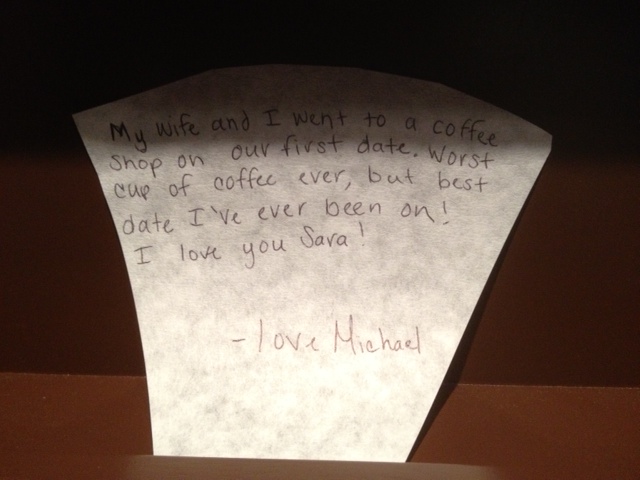 My wife and I went to a coffee
shop on our first date. Worst
cup of coffee ever, but best
date I've ever been on!
I love you Sara!
- love Michael